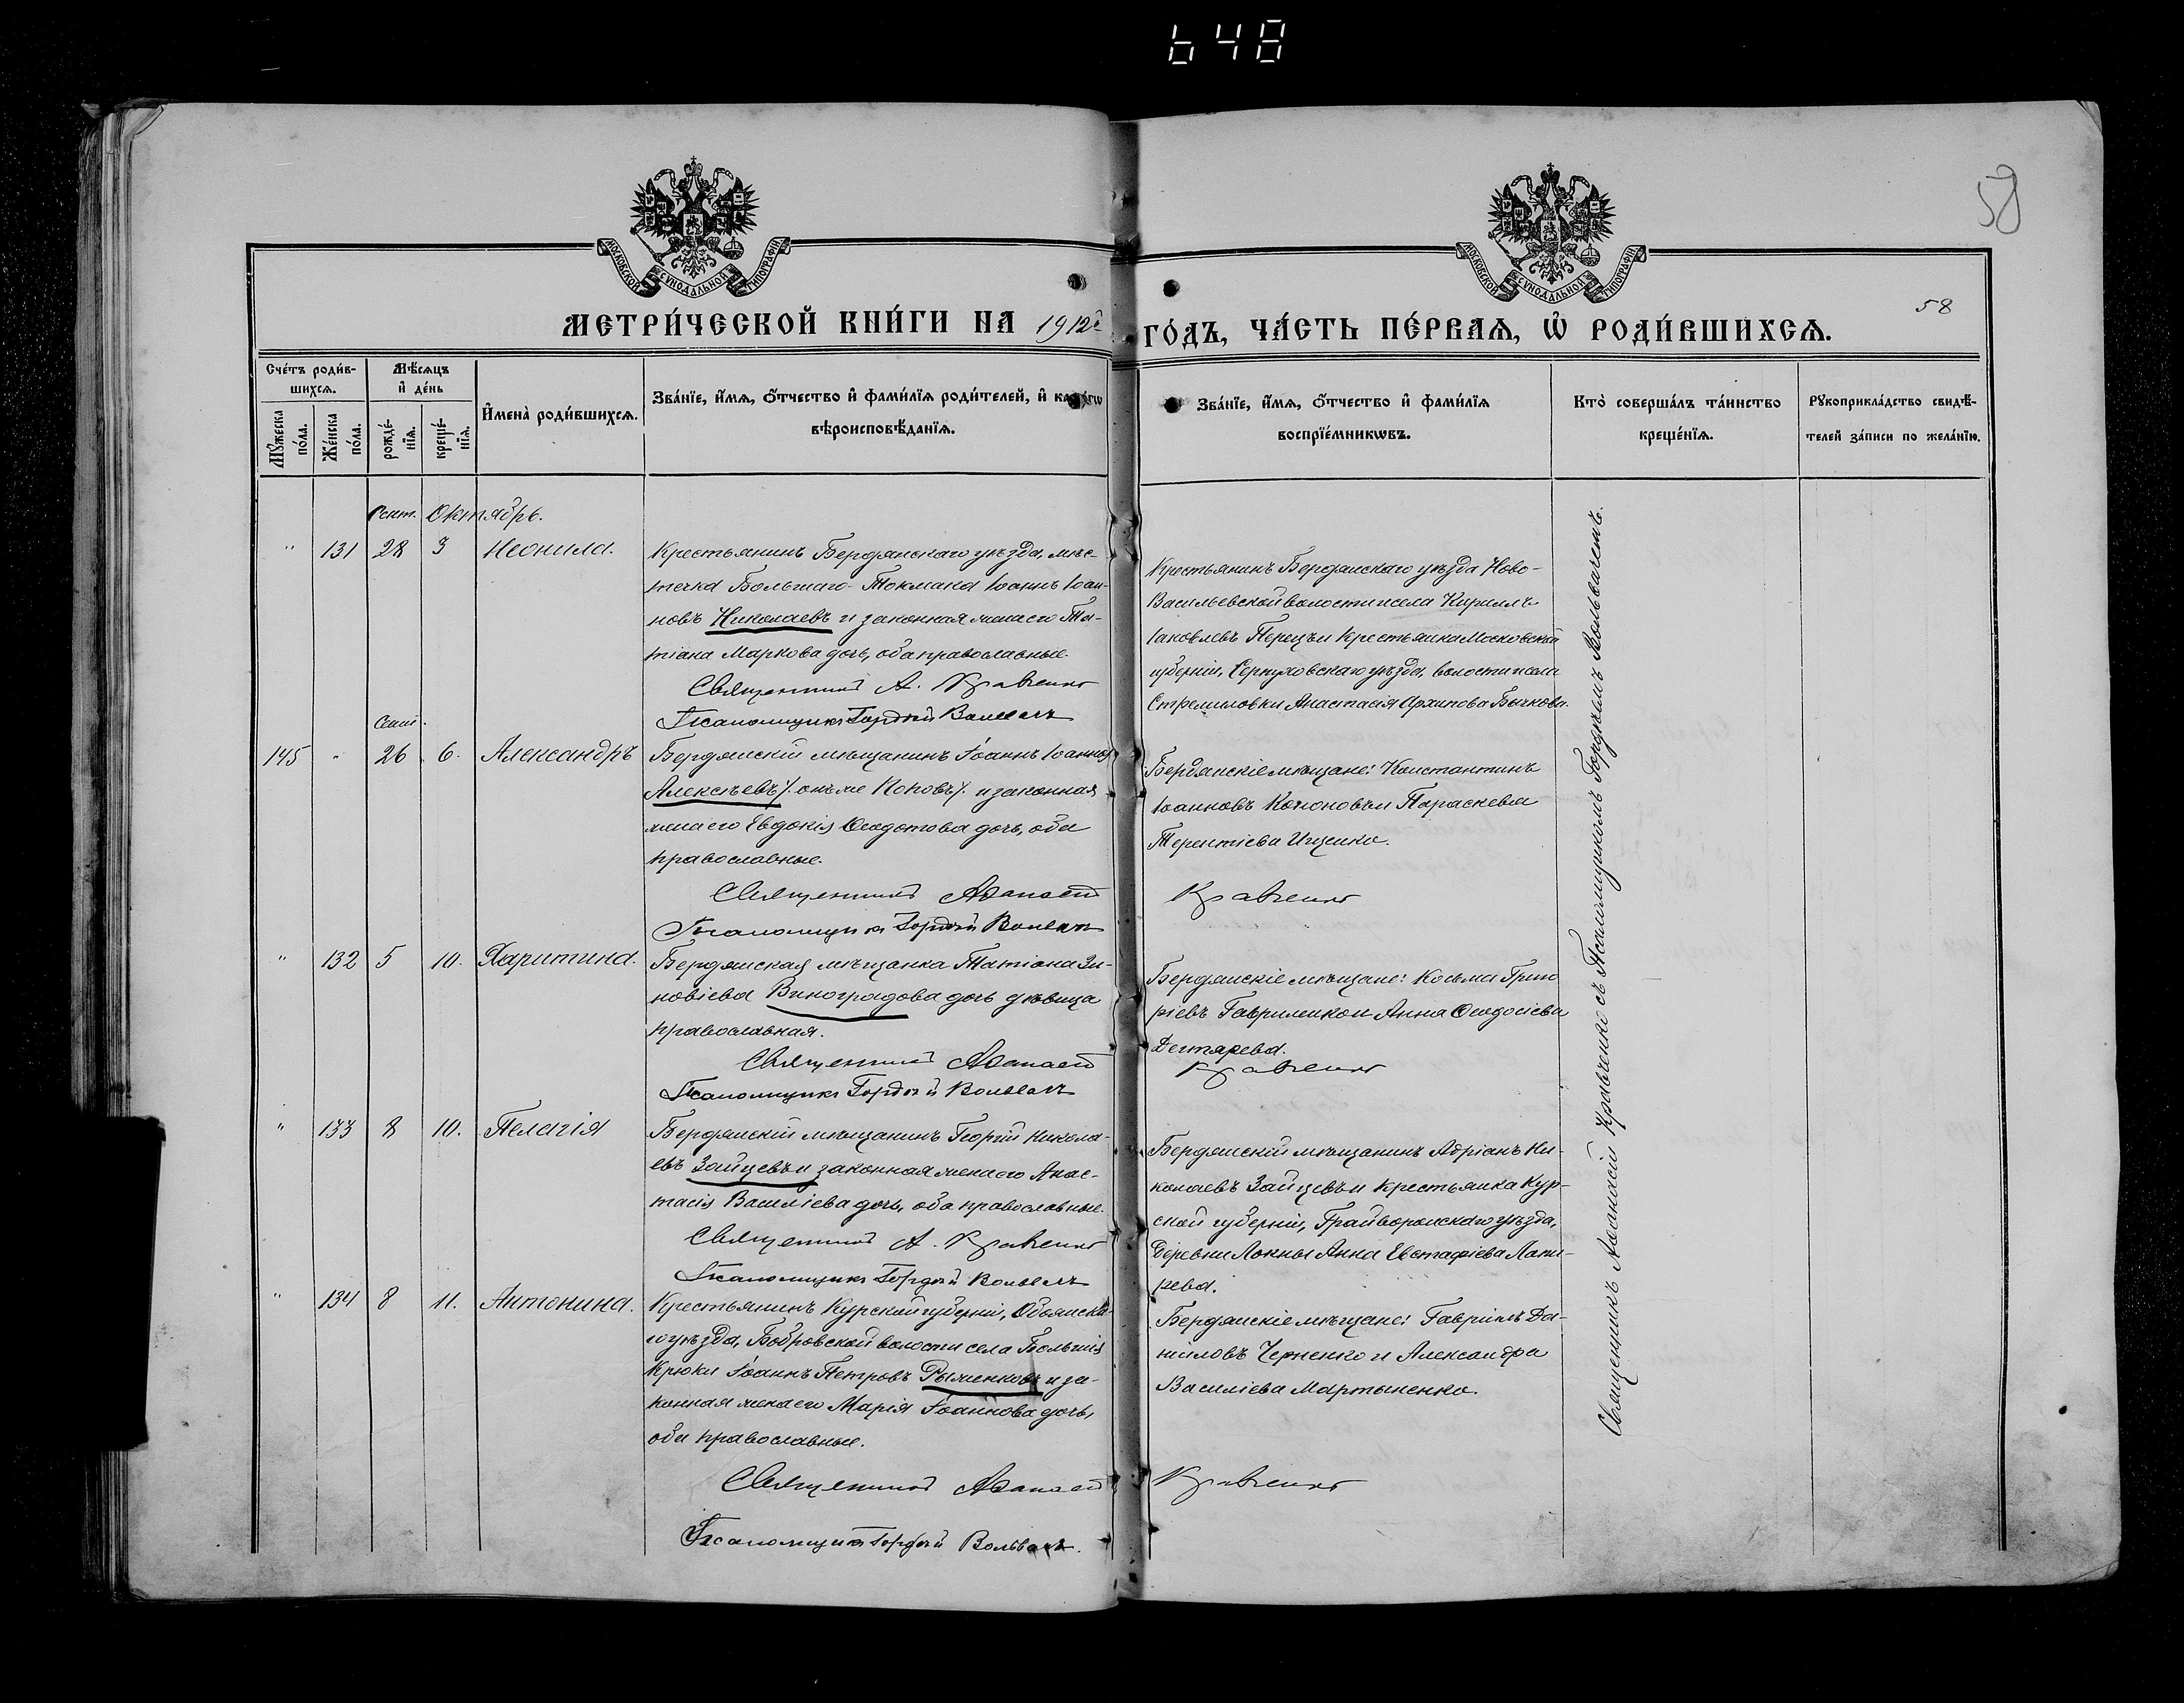 648
58
МОСКОВСКОЙ СѴНОДАЛЬНОЙ ТИПОГРАФІИ
МОСКОВСКОЙ СѴНОДАЛЬНОЙ ТИПОГРАФІИ
58
МЕТРИ́ЧЕСКОЙ КНИ́ГИ НА 1912й
ГО́ДЪ, ЧА́СТЬ ПЕ́РВАѦ, Ѡ҆ РОДИ́ВШИХСѦ.
Сче́тъ роди́в-
шихсѧ.
Мꙋ́жеска
по́ла.
Же́нска
по́ла.
Мѣ́сѧцъ
и҆ де́нь
рожде́-
нїѧ.
креще́-
нїѧ.
И҆мена̀ роди́вшихсѧ.
Зва́нїе, и҆́мѧ, ѻ҆́тчество и҆ фами́лїѧ роди́телей, и҆ како́гѡ
вѣроисповѣ́данїѧ.
Зва́нїе, и҆́мѧ, ѻ҆́тчество и҆ фами́лїѧ
воспрїе́мникѡвъ.
Кто̀ соверша́лъ та́инство
креще́нїѧ.
Рꙋкоприкла́дство свидѣ́-
телей за́писи по жела́нїю.
Сент. Октябрь.
" 131 28 3 Неонила.
Крестьянинъ Бердянскаго уѣзда, мѣс-
течка Большаго-Токмака Іоаннъ Іоан-
новъ Николаевъ и законная жена его Та-
тіана Маркова дочь, оба православные.
Священникъ А. Кравченко
Псаломщикъ Гордѣй Вольвачъ
Крестьянинъ Бердянскаго уѣзда Ново-
Васильевской волости и села Кириллъ
Іаковлевъ Перецъ и крестьянка Московской
губерніи, Серпуховскаго уѣзда, волости и села
Стремиловки Анастасія Архипова Бычкова.
Сент.
145 " 26 6. Александръ
Бердянскій мѣщанинъ Іоаннъ Іоанновъ
Алексѣевъ /. онъ же Поповъ /. и законная
жена его Евдокія Ѳеодотова дочь, оба
православные.
Священникъ Аѳанасій
Псаломщикъ Гордѣй Вольвачъ
Бердянскіе мѣщане: Константинъ
Іоанновъ и Параскева
Терентіева Ищенко.
Кравченко
" 132 5 10. Харитина.
Бердянская мѣщанка Татіана Зи-
новіева Виноградова дочь дѣвица
православная.
Священникъ Аѳанасій
Псаломщикъ Гордѣй Вольвачъ
Бердянскіе мѣщане: Косьма Григо
ріевъ Гавриленко и Анна Ѳеодосіева
Дегтярева.
Кравченко
" 133 8 10. Пелагія
Бердянскій мѣщанинъ Георгій Никола-
евъ Зайцевъ и законная жена его Анас-
тасія Василіева дочь, оба православные.
Священникъ А. Кравченко
Псаломщикъ Гордѣй Вольвачъ
Бердянскій мѣщанинъ Адріанъ Ни-
колаевъ Зайцевъ и крестьянка Кур-
ской губерніи, Грайворонскаго уѣзда,
Деревни Локны Анна Евстафіева Лаки-
рева.
" 134 8 11. Антонина.
Крестьянинъ Курской губерніи, Обоянска-
го уѣзда, Бобровской волости села Большія
Крюки Іоаннъ Петровъ Рыженковъ и за-
конная жена его Марія Іоаннова дочь,
оба православные.
Священникъ Аѳанасій
Псаломщикъ Гордѣй Вольвачъ.
Бердянскіе мѣщане: Гавріилъ Да-
ніиловъ Черненко и Александра
Василіева Мартыненко.
Кравченко
Священникъ Аѳанасій Кравченко съ Псаломщикомъ Гордѣемъ Вольвачемъ.